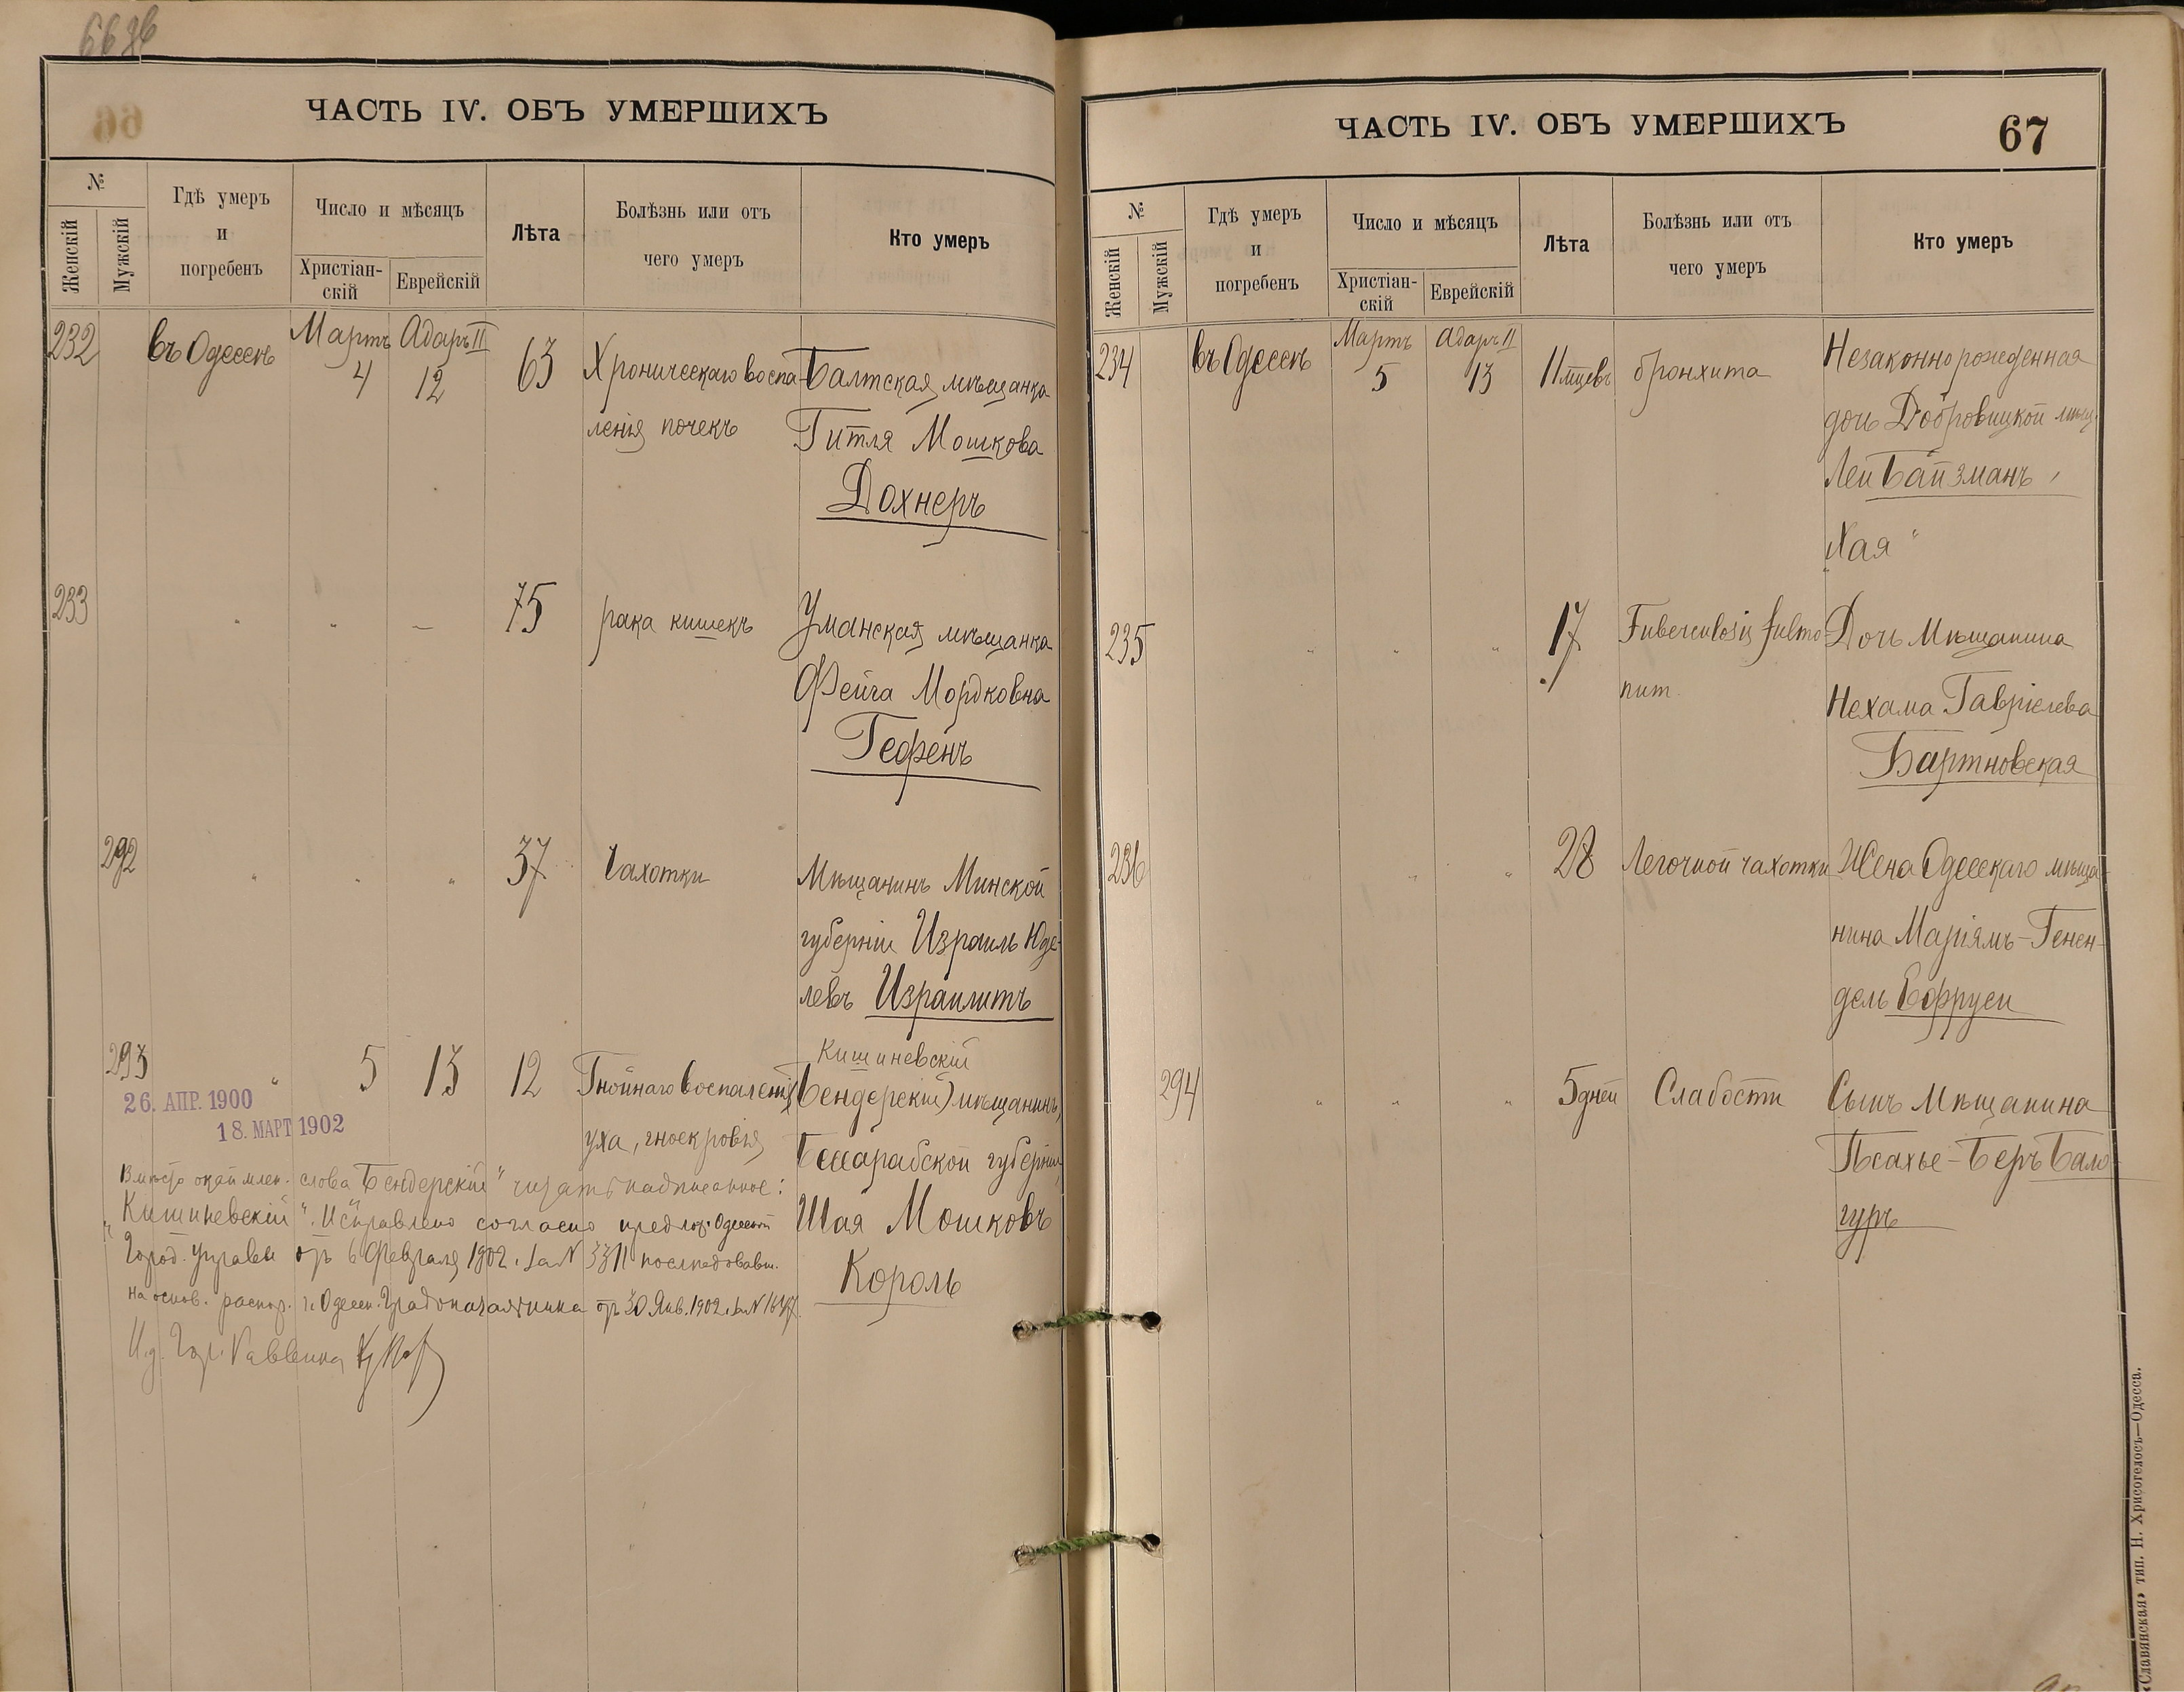 66
ЧАСТЬ IV. ОБЪ УМЕРШИХЪ
№
Женскій
Мужскій
Гдѣ умеръ
и
погребенъ
Число и мѣсяцъ
Христіан-
скій
Еврейскій
Лѣта
Болѣзнь или отъ
чего умеръ
Кто умеръ
232 въ Одессѣ Мартъ 4 Адаръ II 12 63 Хроническаго воспа- Балтская мѣщанка
ленія почекъ Гитля Мошкова
Дохнеръ
233 " " — 75 рака кишекъ Уманская мѣщанка
Фейга Мордковна
Гефенъ
292 " " " 37 Чахотки Мѣщанинъ Минской
губерніи Израиль Юде-
левъ Израилитъ
Кишиневскій
293 " 5 13 12 Гнойнаго воспаленія (Бендерскій) мѣщанинъ,
26. АПР. 1900
18. МАРТ 1902
уха, гноекровія Бессарабской губерніи,
Шая Мошковъ
Король
Вмѣсто окаймлен. слова "Бендерскій" читать надписанное:
"Кишиневскій". Исправлено согласно предлож. Одесской
Город. Управы отъ 6 Февраля 1902. за N 3311 последовавш.
на основ. распор. г. Одесск. Градоначальника отъ 30 Янв. 1902. за N 1647
И.д. Гор. Раввина
ЧАСТЬ IV. ОБЪ УМЕРШИХЪ
67
№
Женскій
Мужскій
Гдѣ умеръ
и
погребенъ
Число и мѣсяцъ
Христіан-
скій
Еврейскій
Лѣта
Болѣзнь или отъ
чего умеръ
Кто умеръ
234 въ Одессѣ Мартъ 5 Адаръ II 13 11 мцевъ бронхита Незаконнорожденная
дочь Добровицкой мѣщ.
Леи Байзманъ,
Хая "
235 " " " 17 Tuberculosis pulmo- Дочь Мѣщанина
num. Нехама Гавріелева
Бартновская
236 " " 28 Легочной чахотки Жена Одесскаго мѣща-
нина Маріямъ-Генен-
дель Ефруси
294 " " " 5 дней Слабости Сынъ Мѣщанина
Псахье-Беръ Бало-
гуръ
«Славянская» тип. Н. Хрисогелосъ—Одесса.